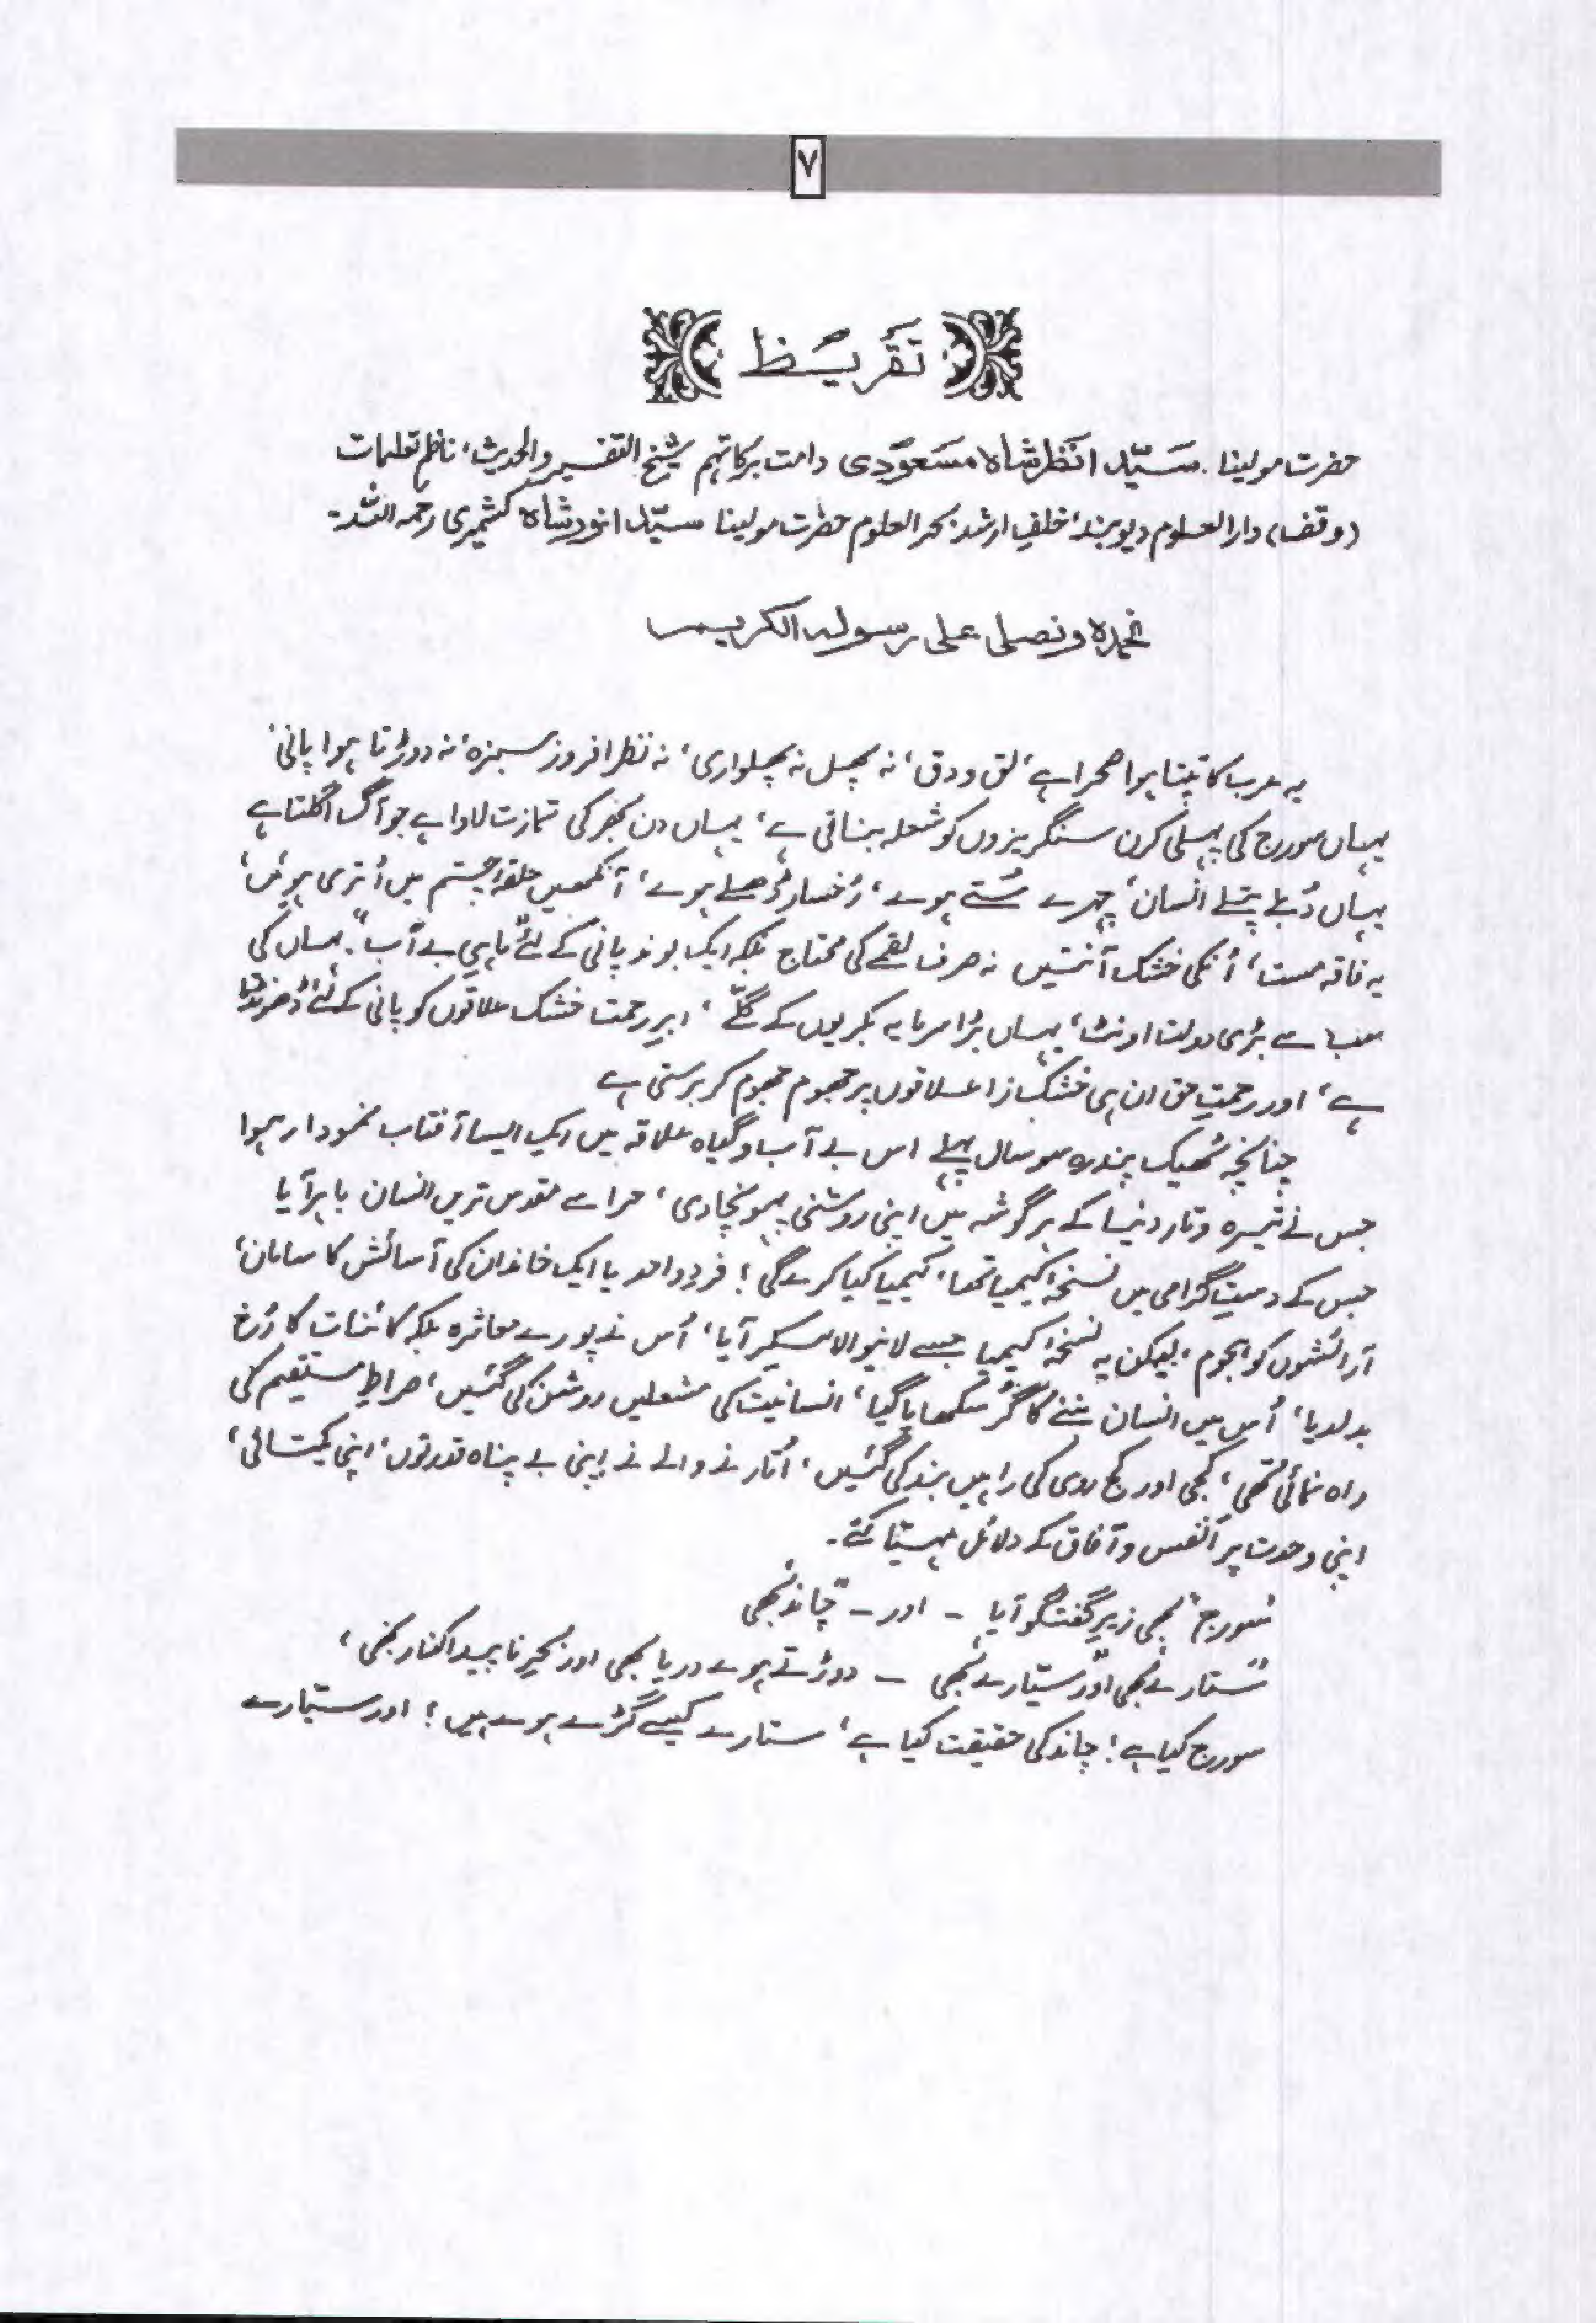 ۷
تقریظ
حضرت مولینا سیّد انظر شاہ مسعودی دامت برکاتہم شیخ التفسیر والحدیث، ناظم تعلیمات
(وقف) دارالعلوم دیوبند، خلفِ ارشد بحر العلوم حضرت مولینا سیّد انور شاہ کشمیری رحمہ اللہ۔
نحمدہ ونصلی علی رسولہ الکریم
یہ عرب کا تپتا ہوا صحرا ہے، لق و دق، نہ پھل نہ پھلواری، نہ نظر افروز سبزہ، نہ دوڑتا ہوا پانی،
یہاں سورج کی پہلی کرن سنگریزوں کو شعلہ بناتی ہے، یہاں دن بھر کی تمازت لاوا ہے جو آگ اگلتا ہے
یہاں دُبلے پتلے انسان، چہرے سُتے ہوے، رُخسار ڈھلے ہوے، آنکھیں حلقۂ چشم میں اُتری ہوئیں،
یہ فاقہ مست، اُنکی خشک آنتیں نہ صرف لقمے کی محتاج بلکہ ایک بوند پانی کے لئے "ماہیِ بے آب"۔ یہاں کی
سب سے بڑی دولت اونٹ، یہاں بڑا سرمایہ بکریوں کے گلّے، ابرِ رحمت خشک علاقوں کو پانی کے لئے ڈھونڈتا
ہے، اور رحمتِ حق ان ہی خشک زا علاقوں پر جھوم جھوم کر برستی ہے
چنانچہ ٹھیک پندرہ سو سال پہلے اس بے آب و گیاہ علاقہ میں ایک ایسا آفتاب نمودار ہوا
جس نے تیرہ و تار دنیا کے ہر گوشہ میں اپنی روشنی پہونچادی، حرا سے مقدس ترین انسان باہر آیا
جس کے دستِ گرامی میں نسخۂ کیمیا تھا، کیمیا کیا کرے گی؛ فردِ واحد یا ایک خاندان کی آسائش کا سامان،
آرائشوں کو ہجوم، لیکن یہ نسخۂ کیمیا جسے لانیوالا لیکر آیا، اُس نے پورے معاشرہ بلکہ کائنات کا رُخ
بدلدیا، اُس میں انسان بننے کا گُر سکھایا گیا، انسانیت کی مشعلیں روشن کی گئیں، صراطِ مستقیم کی
راہ نمائی تھی، کجی اور کج روی کی راہیں بند کی گئیں، اُتارنے والے نے اپنی بے پناہ قدرتوں، اپنی یکتائی،
اپنی وحدت پر انفس و آفاق کے دلائل مہیّا کئے۔
"سورج" بھی زیرِ گفتگو آیا - اور - "چاند" بھی
"ستارے" بھی اور "سیّارے" بھی - دوڑتے ہوے دریا بھی اور بحرِ ناپیدا کنار بھی،
سورج کیا ہے؛ چاند کی حقیقت کیا ہے، ستارے کیسے گڑے ہوے ہیں؛ اور سیّارے